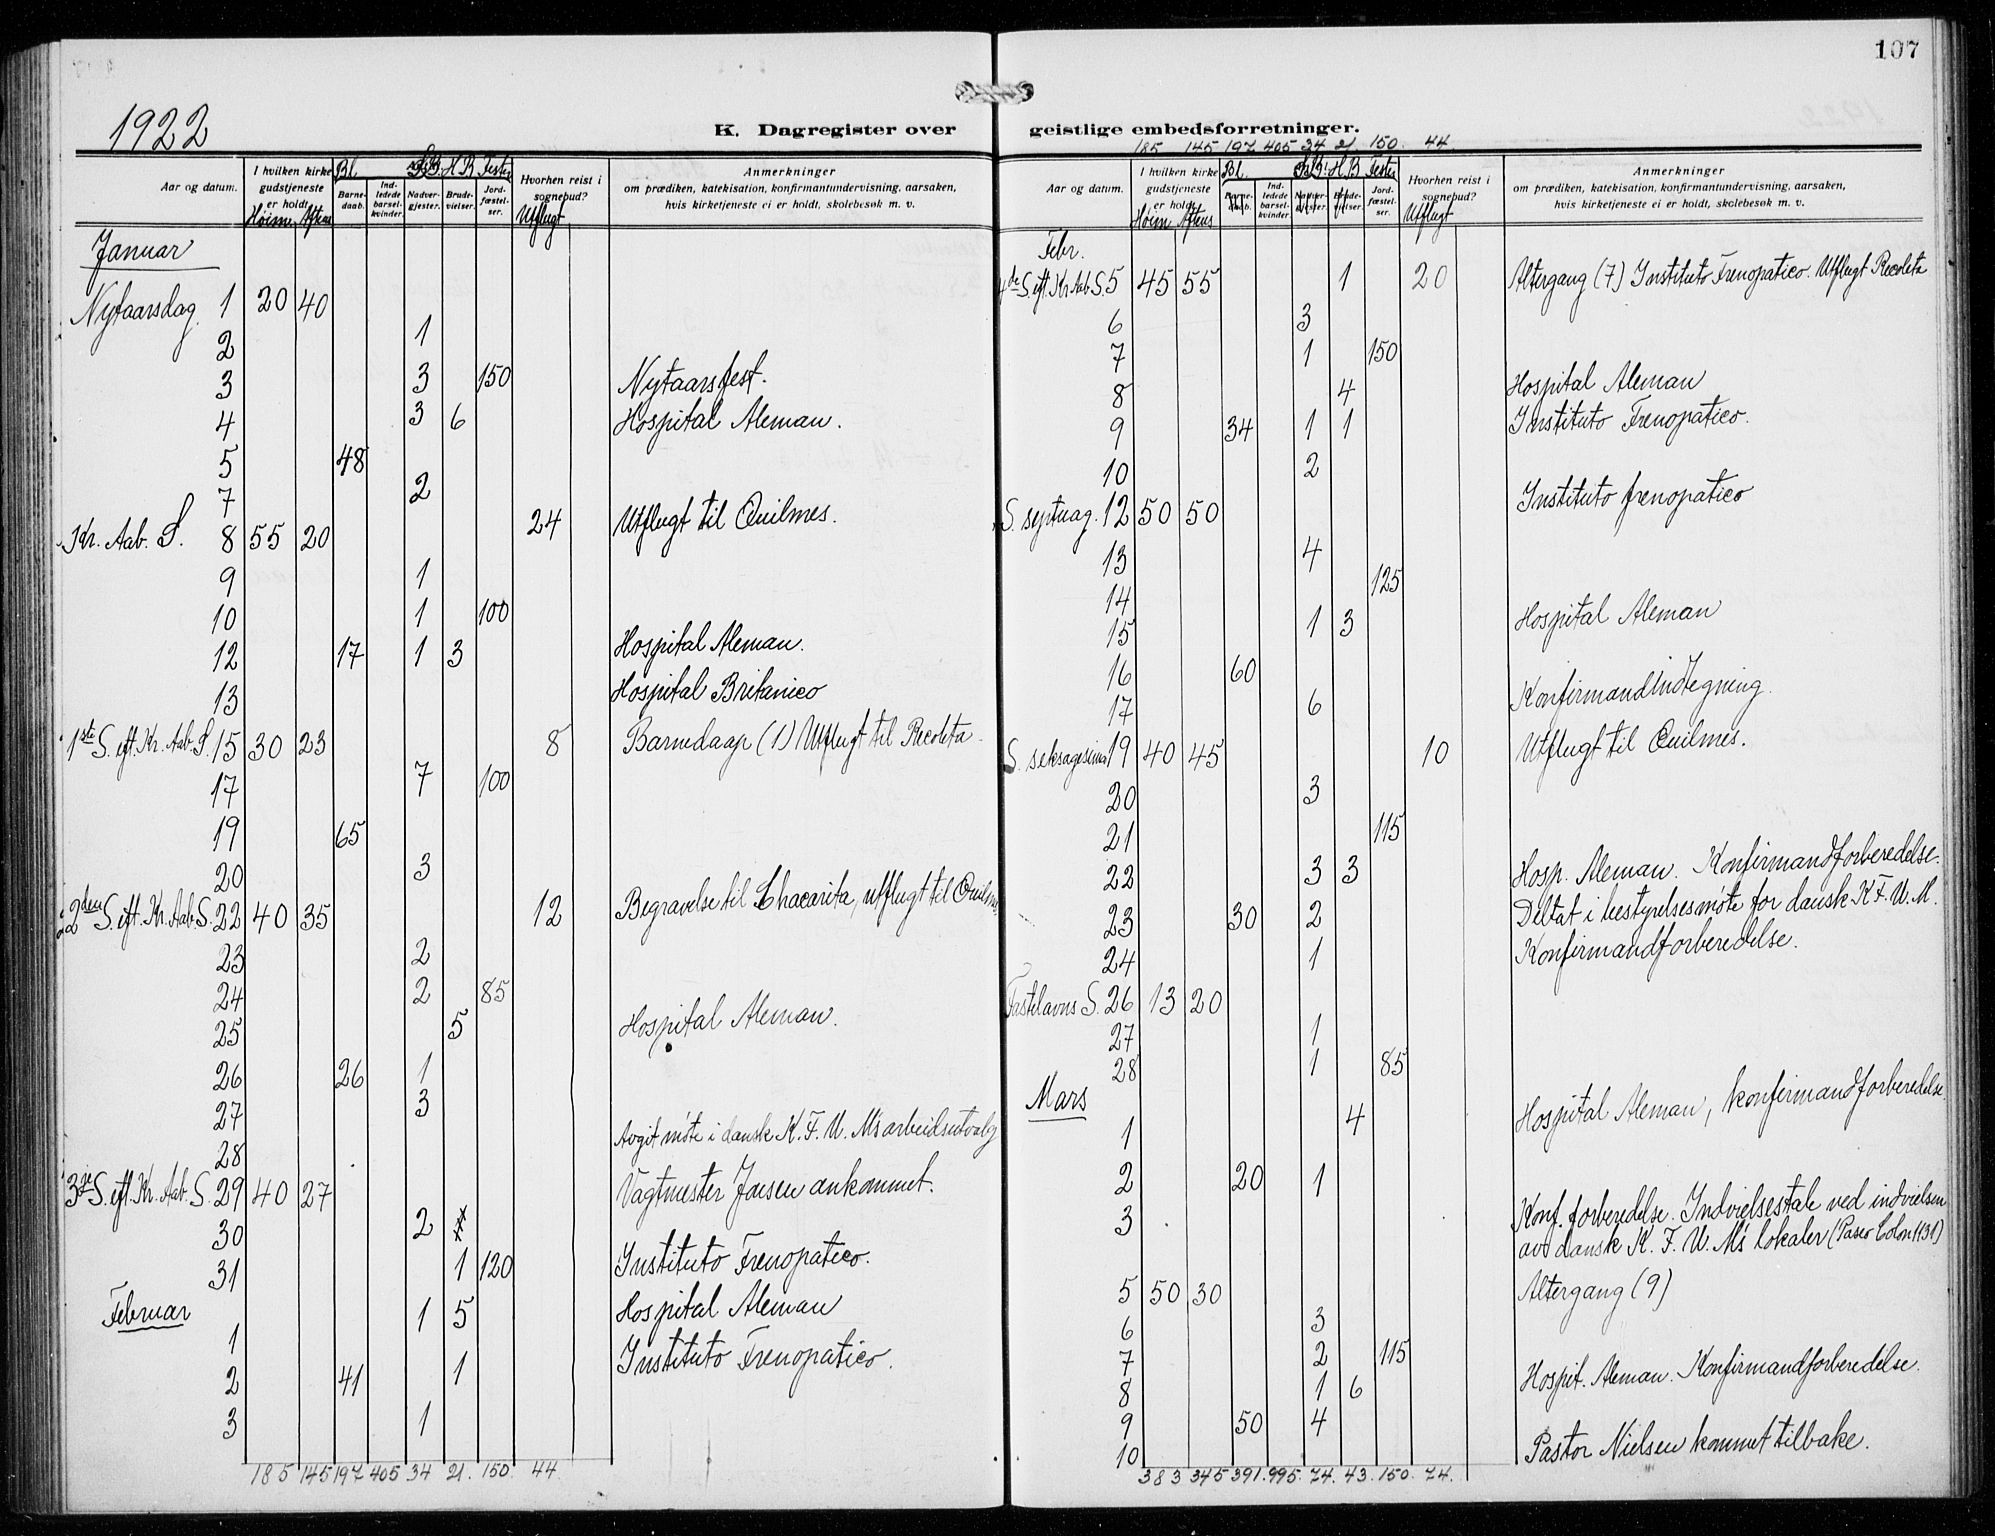 107
1922
K. Dagregister over geistlige embedsforretninger.
Aar og datum.
I hvilken kirke gudstjeneste er holdt
Høim. Aftens
Bl.
Barne-daab.
Ind-ledede barsel-kvinder.
S.B.
Nadver-gjester.
H.B.
Brude-vielser.
Fester
Jord-fæstel-ser.
Hvorhen reist i sognebud?
Utflugt
Anmerkninger
om prædiken, katekisation, konfirmantundervisning, aarsaken, hvis kirketjeneste ei er holdt, skolebesøk m. v.
Januar
Nytaarsdag. 1 20 40
2 1
3 3 150 Nytaarsfest.
4 3 6 Hospital Aleman.
5 48
7 2
Kr. Aab. S. 8 55 20 24 Utflugt til Quilmes.
9 1
10 1 100
12 17 1 3 Hospital Aleman.
13 Hospital Britanico
1ste S. eft. Kr. Aab. S. 15 30 23 8 Barnedaap (1) Utflugt til Recoleta
17 7 100
19 65
20 3
2den S. eft. Kr. Aab. S. 22 40 35 12 Begravelse til Chacarita, utflugt til Quilmes.
23 2
24 2 85
25 5 Hospital Aleman.
26 26 1
27 3
28 Avgit møte i dansk K.F.U.M's arbeidsutvalg
3je S. eft. Kr. Aab. S. 29 40 27 Vagtmester Jansen ankommet.
30 2
31 1 120 Instituto Frenopatico.
Februar
1 1 5 Hospital Aleman
2 41 1 Instituto Frenopatico.
3 1
185 145 197 405 34 21. 150. 44.
185 145 197 405 34 21 150. 44
Aar og datum.
I hvilken kirke gudstjeneste er holdt
Høim Aftens
Bl.
Barne-daab.
Ind-ledede barsel-kvinder.
S.B.
Nadver-gjester.
H.B
Brude-vielser.
Fester
Jord-fæstel-ser.
Hvorhen reist i sognebud?
Utflugt
Anmerkninger
om prædiken, katekisation, konfirmantundervisning, aarsaken, hvis kirketjeneste ei er holdt, skolebesøk m. v.
Febr.
4de S. eft. Kr. Aab. S. 5 45 55 1 20 Altergang (7) Instituto Frenopatico. Utflugt Recoleta
6 3
7 1 150
8 4 Hospital Aleman
9 34 1 1 Instituto Frenopatico.
10 2
S. septuag. 12 50 50 Instituto frenopatico
13 4
14 125
15 1 3 Hospital Aleman
16 60
17 6 Konfirmandindtegning.
S. seksagesima 19 40 45 10 Utflugt til Quilmes.
20 3
21 115
22 3 3 Hosp. Aleman. Konfirmandforberedelse.
23 30 2 Deltat i bestyrelsesmøte for dansk K.F.U.M.
24 1 Konfirmandforberedelse.
Fastelavns S. 26 13 20
27 1
28 1 85
Mars
1 4 Hospital Aleman, konfirmandforberedelse
2 20 1
3 Konf. forberedelse. Indvielsestale ved indvielsen
av dansk K.F.U.M's lokaler (Paseo Colon 1131)
5 50 30 Altergang (9)
6 3
7 2 115
8 1 6 Hospit. Aleman. Konfirmandforberedelse.
9 50 4
10 Pastor Nielsen kommet tilbake.
383 345 391. 995. 74. 43. 150. 74.